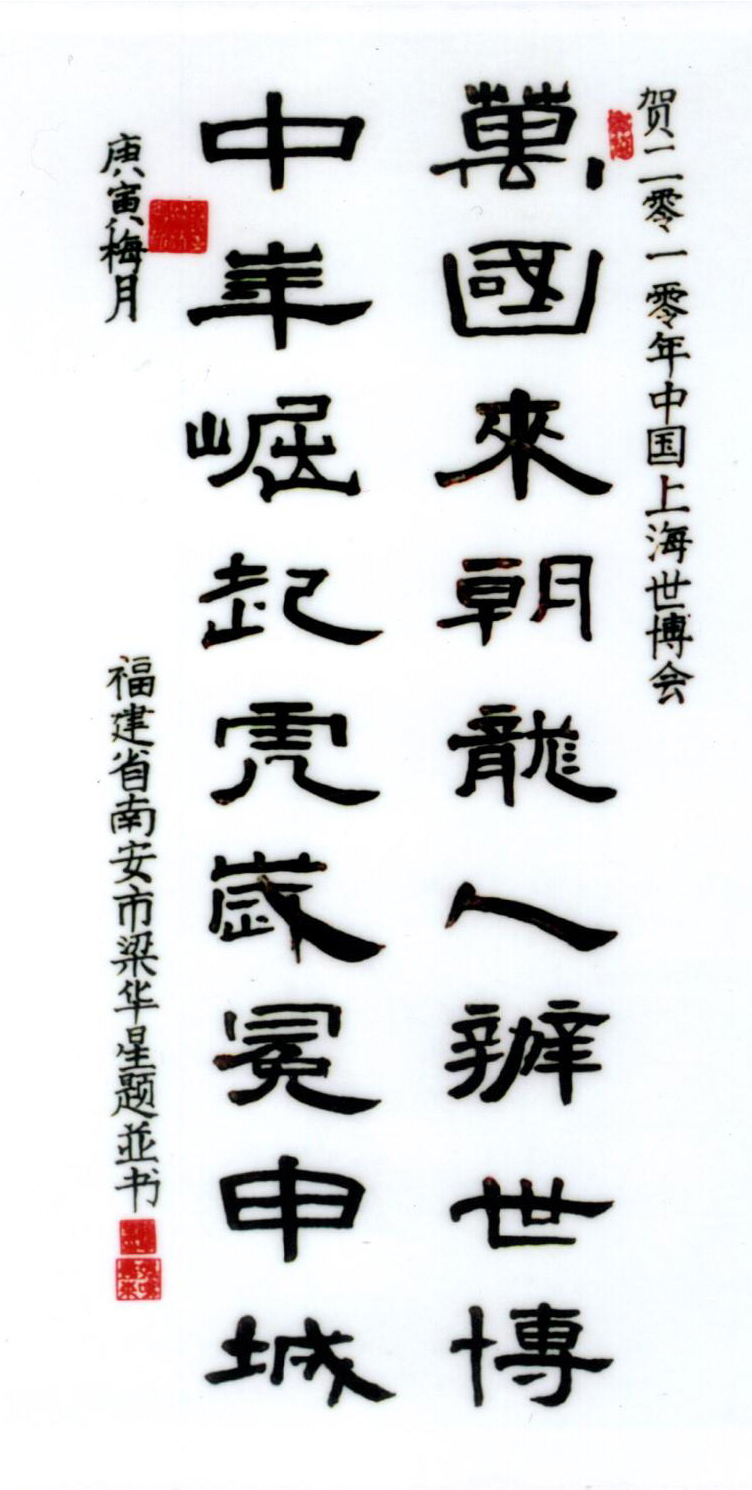 贺二零一零年中国上海世博会
萬國來朝龍人辦世博
中華崛起虎歲冕申城
庚寅梅月
福建省南安市梁华星题並书